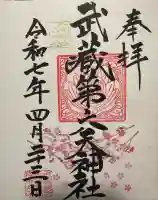 奉拝
武蔵第六天神社
令和七年四月二十三日